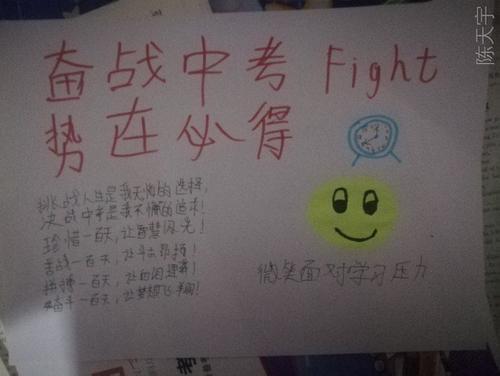 奋战中考 Fight
势在必得
挑战人生是我无悔的选择,
决战中考是我不懈的追求!
珍惜一百天,让智慧闪光!
苦战一百天,让斗志昂扬!
拼搏一百天,让
奋斗一百天,让梦想飞翔!
微笑面对学习压力
陈天宇